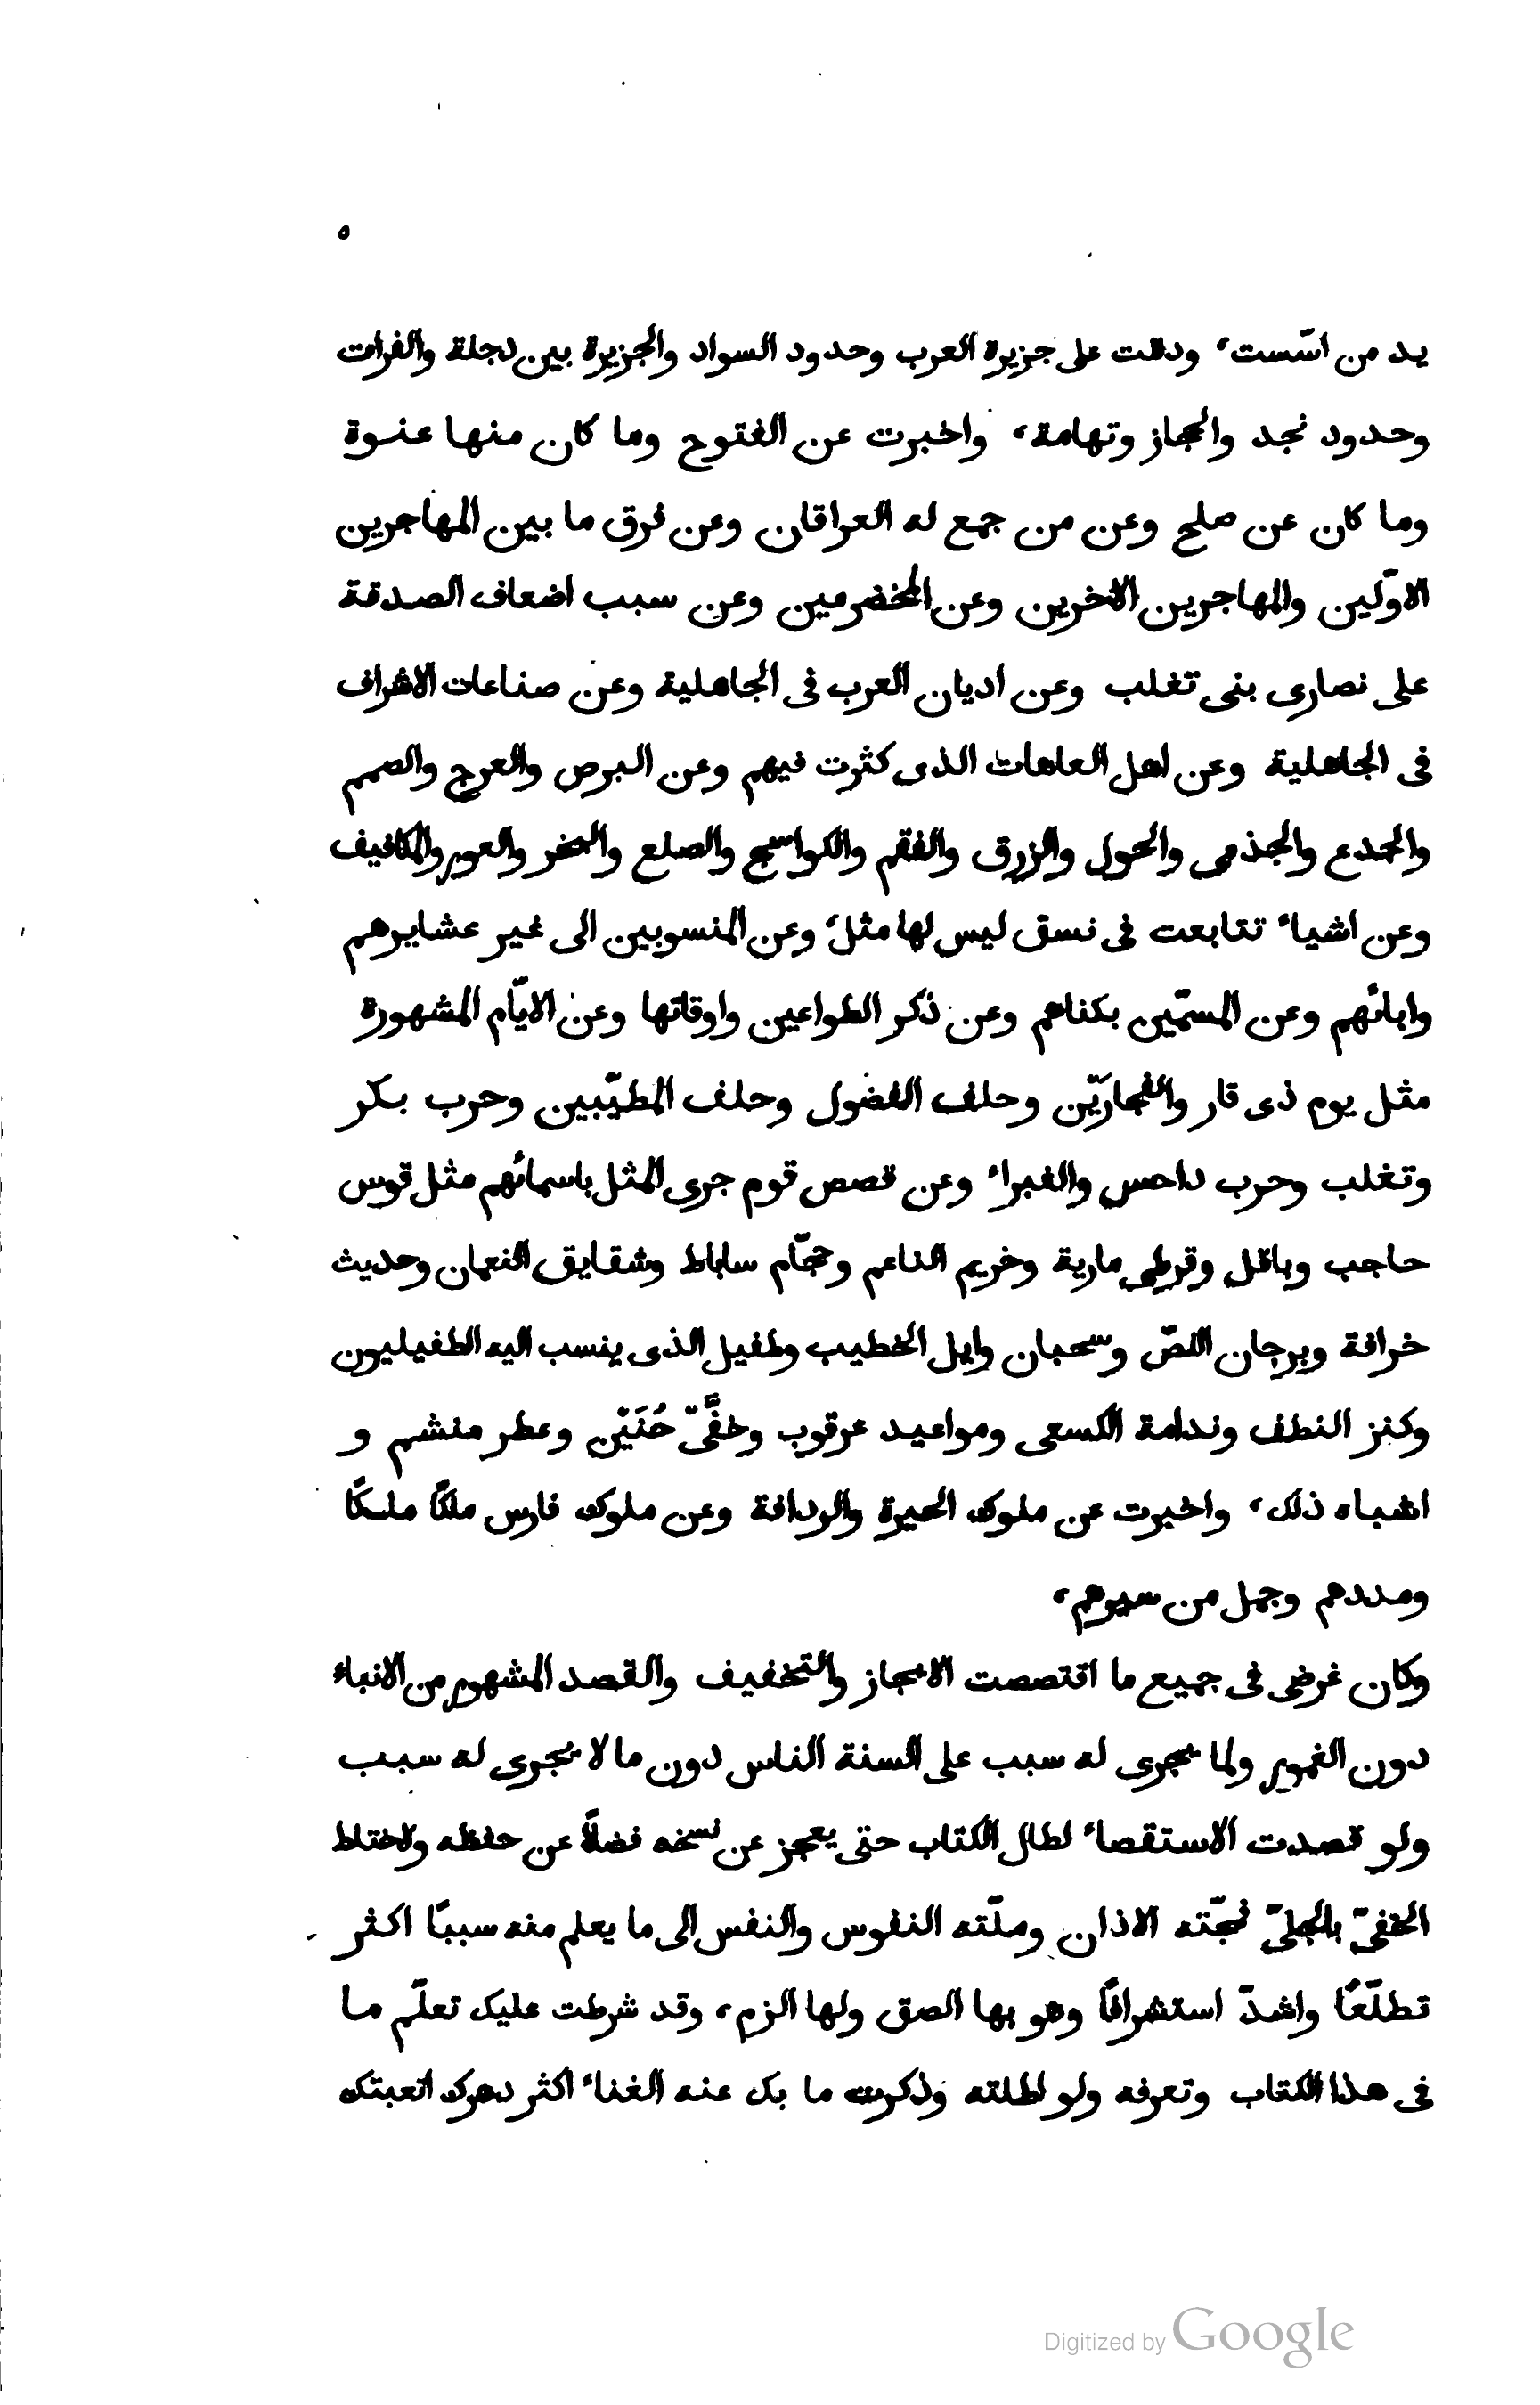 ٥
يد من اسّست، ودللت على جزيرة العرب وحدود السواد والجزيرة بين دجلة والفرات
وحدود نجد والحجاز وتهامة، واخبرت عن الفتوح وما كان منها عنوة
وما كان عن صلح وعن من جمع له العراقان وعن فرق ما بين المهاجرين
الاوّلين والمهاجرين الاخرين وعن المخضرمين وعن سبب اضعاف الصدقة
على نصارى بنى تغلب وعن اديان العرب فى الجاهلية وعن صناعات الاشراف
فى الجاهلية وعن اهل العاهات الذى كثرت فيهم وعن البرص والعرج والصمم
والجدع والجذمى والحول والزرق والفقم والكواسج والصلع والبخر والعور والمكافيف
وعن اشياء تتابعت فى نسق ليس لها مثل، وعن المنسوبين الى غير عشايرهم
وابائهم وعن المسمّين بكناهم وعن ذكر الطواعين واوقاتها وعن الايّام المشهورة
مثل يوم ذى قار والفجاريّن وحلف الفضول وحلف المطيّبين وحرب بكر
وتغلب وحرب داحس والغبراء وعن قصص قوم جرى المثل باسمائهم مثل قوس
حاجب وباقل وقرطى مارية وخريم الناعم وحجّام ساباط وشقايق النعمان وحديث
خرافة وبرجان اللصّ وسحبان وايل الخطيب وطفيل الذى ينسب اليه الطفيليون
وكنز النطف وندامة الكسعى ومواعيد عرقوب وخفَّىْ حُنَيْن وعطر منشم و
اشباه ذلك، واخبرت عن ملوك الحيرة والردافة وعن ملوك فارس ملكًا ملكًا
ومددهم وجمل من سيرهم،
وكان غرضى فى جميع ما اقتصصت الايجاز والتخفيف والقصد المشهور من الانباء
دون الغمور ولما يجرى له سبب على السنة الناس دون ما لا يجرى له سبب
ولو قصدت الاستقصاء لطال الكتاب حتى يعجز عن نسخه فضلًا عن حفظه ولاختلط
الخفىّ بالجلىّ فمجّته الاذان وملّته النفوس والنفس الى ما يعلم منه سببًا اكثر
تطلّعًا واشدّ استشرافًا وهو بها الصق ولها الزم، وقد شرطت عليك تعلّم ما
فى هذا الكتاب وتعرفه ولو اطلته وذكرت ما بك عنه الغناء اكثر دهرك اتعبتك
Digitized by Google